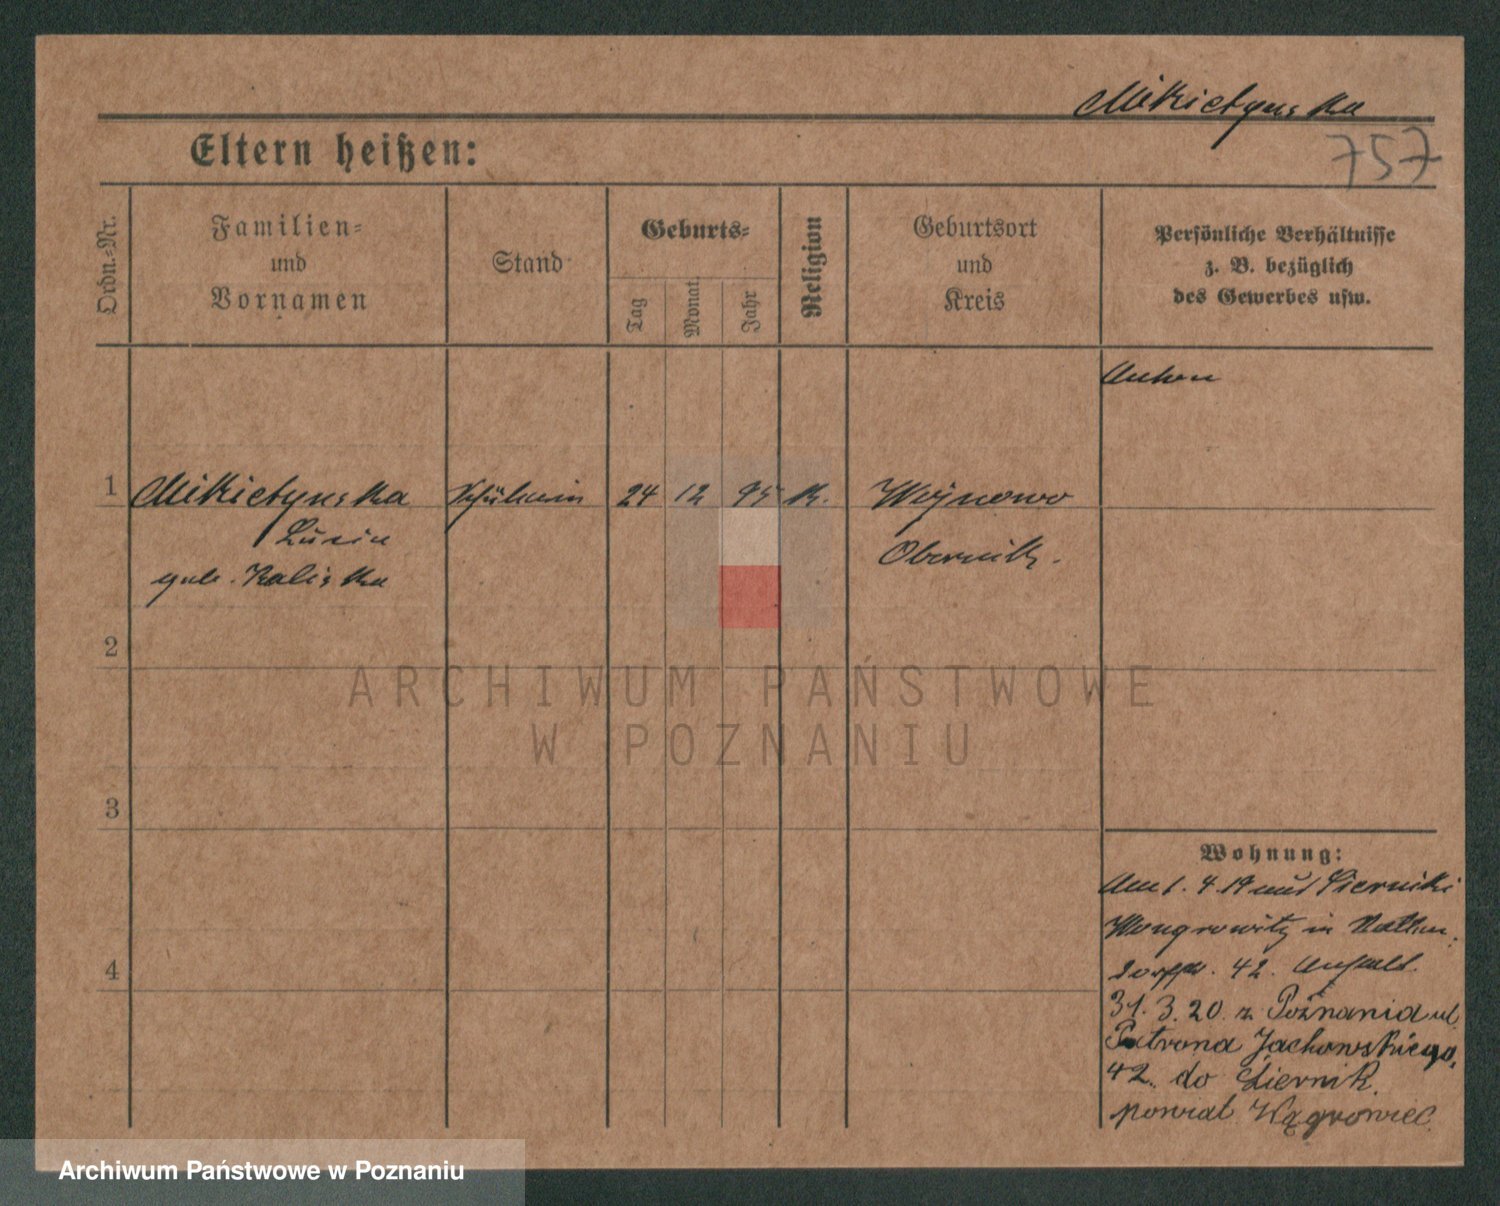 Mikietynska
757
Eltern heißen:
Ordn.-Nr.
Familien-
und
Vornamen
Stand
Geburts-
Tag
Monat
Jahr
Religion
Geburtsort
und
Kreis
Persönliche Verhältnisse
z. B. bezüglich
des Gewerbes usw.
1
Mikietynska
Schülerin
24 12 95 K.
Wojnowo
geb. Kaliska
Obornik.
2
ARCHIWUM PAŃSTWOWE
W POZNANIU
3
Wohnung:
Am 1. 4. 19 aus Siernicki
Wongrowitz in
42.
4
31. 3. 20. z Poznania ul.
Patrona Jackowskiego.
42. do Siernik.
powiat Wągrowiec.
Archiwum Państwowe w Poznaniu